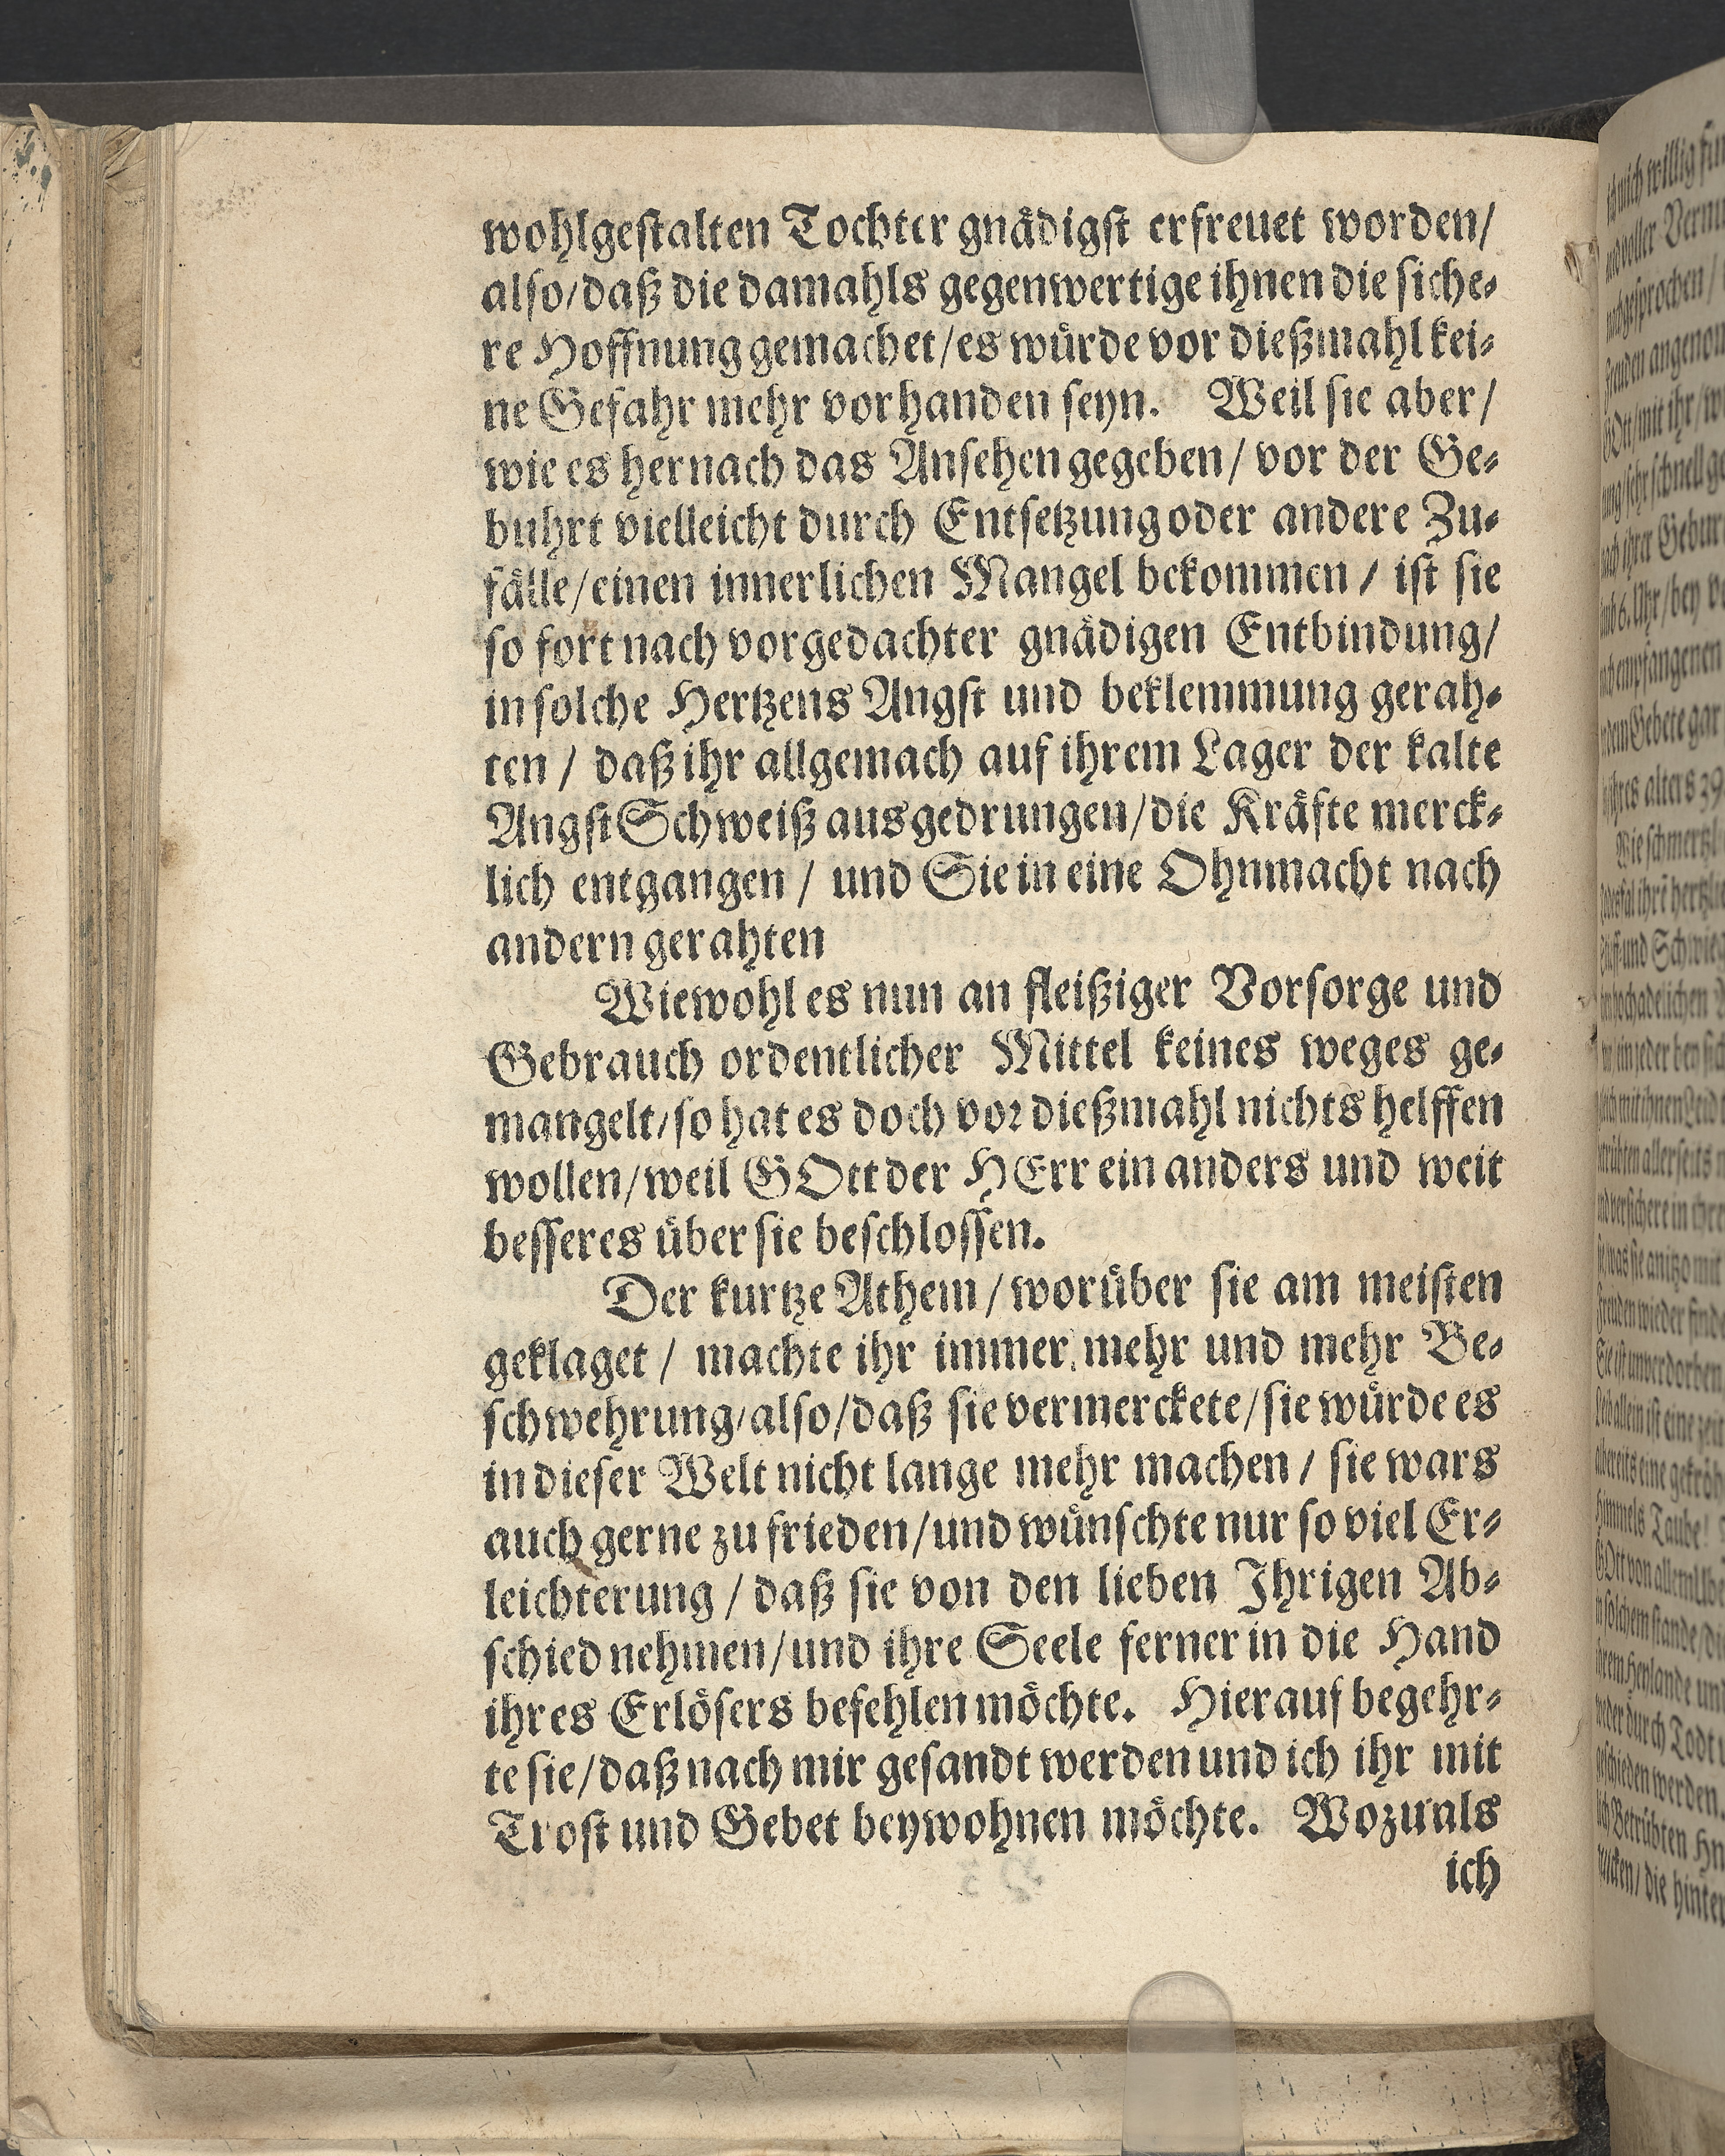 wohlgeſtalten Tochter gnaͤdigſt erfreuet worden/
alſo/daß die damahls gegenwertige ihnen die ſiche⸗
re Hoffnung gemachet/es wuͤrde vor dießmahl kei⸗
ne Gefahr mehr vorhanden ſeyn. Weil ſie aber/
wie es hernach das Anſehen gegeben/ vor der Ge⸗
buhrt vielleicht durch Entſetzung oder andere Zu⸗
faͤlle/einen innerlichen Mangel bekommen / iſt ſie
ſo fort nach vorgedachter gnaͤdigen Entbindung/
in ſolche Hertzens Angſt und beklemmung gerah⸗
ten / daß ihr allgemach auf ihrem Lager der kalte
Angſt Schweiß ausgedrungen/die Kraͤfte merck⸗
lich entgangen / und Sie in eine Ohnmacht nach
andern gerahten
Wiewohl es nun an fleißiger Vorſorge und
Gebrauch ordentlicher Mittel keines weges ge⸗
mangelt/ſo hat es doch voꝛ dießmahl nichts helffen
wollen/weil GOtt der HErr ein anders und weit
beſſeres uͤber ſie beſchloſſen.
Der kurtze Athem / woruͤber ſie am meiſten
geklaget / machte ihr immer mehr und mehr Be⸗
ſchwehrung/alſo/daß ſie vermerckete/ſie wuͤrde es
in dieſer Welt nicht lange mehr machen / ſie wars
auch gerne zu frieden/und wuͤnſchte nur ſo viel Er⸗
leichterung / daß ſie von den lieben Ihrigen Ab⸗
ſchied nehmen/und ihre Seele ferner in die Hand
ihres Erloͤſers befehlen moͤchte. Hierauf begehr⸗
te ſie/daß nach mir geſandt werden und ich ihr mit
Troſt und Gebet beywohnen moͤchte. Wozu als
ich